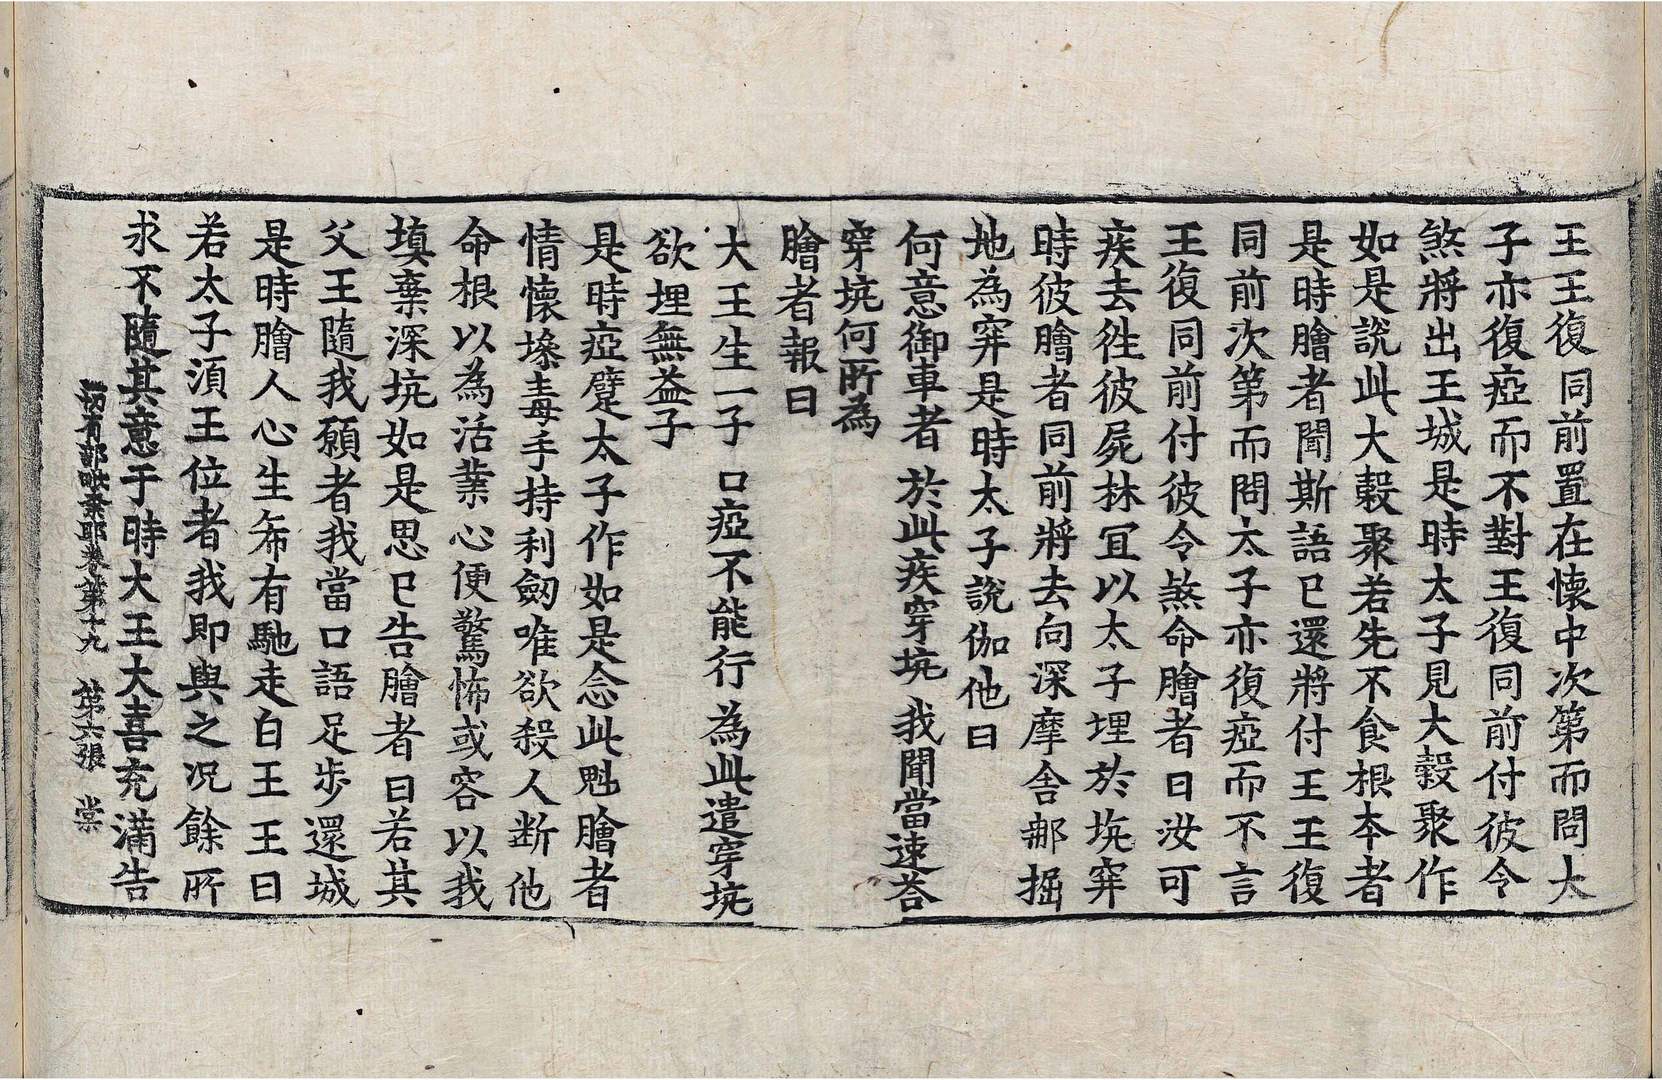 王王復同前置在懷中次第而問太
子亦復瘂而不對王復同前付彼令
煞將出王城是時太子見大穀聚作
如是說此大穀聚若先不食根本者
是時膾者聞斯語已還將付王王復
同前次第而問太子亦復瘂而不言
王復同前付彼令煞命膾者曰汝可
疾去往彼屍林冝以太子埋於坑穽
時彼膾者同前將去向深摩舍那掘
地為穽是時太子說伽他曰
何意御車者 於此疾穿坑 我聞當速荅
穿坑何所為
膾者報曰
大王生一子 口瘂不能行 為此遣穿坑
欲埋無益子
是時瘂躄太子作如是念此魁膾者
情懷㙇毒手持利劒唯欲殺人斷他
命根以為活業心便驚怖或容以我
填棄深坑如是思已告膾者曰若其
父王隨我願者我當口語足步還城
是時膾人心生希有馳走白王王曰
若太子須王位者我即與之况餘所
求不隨其意于時大王大喜充滿告
一切有部毗柰耶卷第十九 第六張 棠